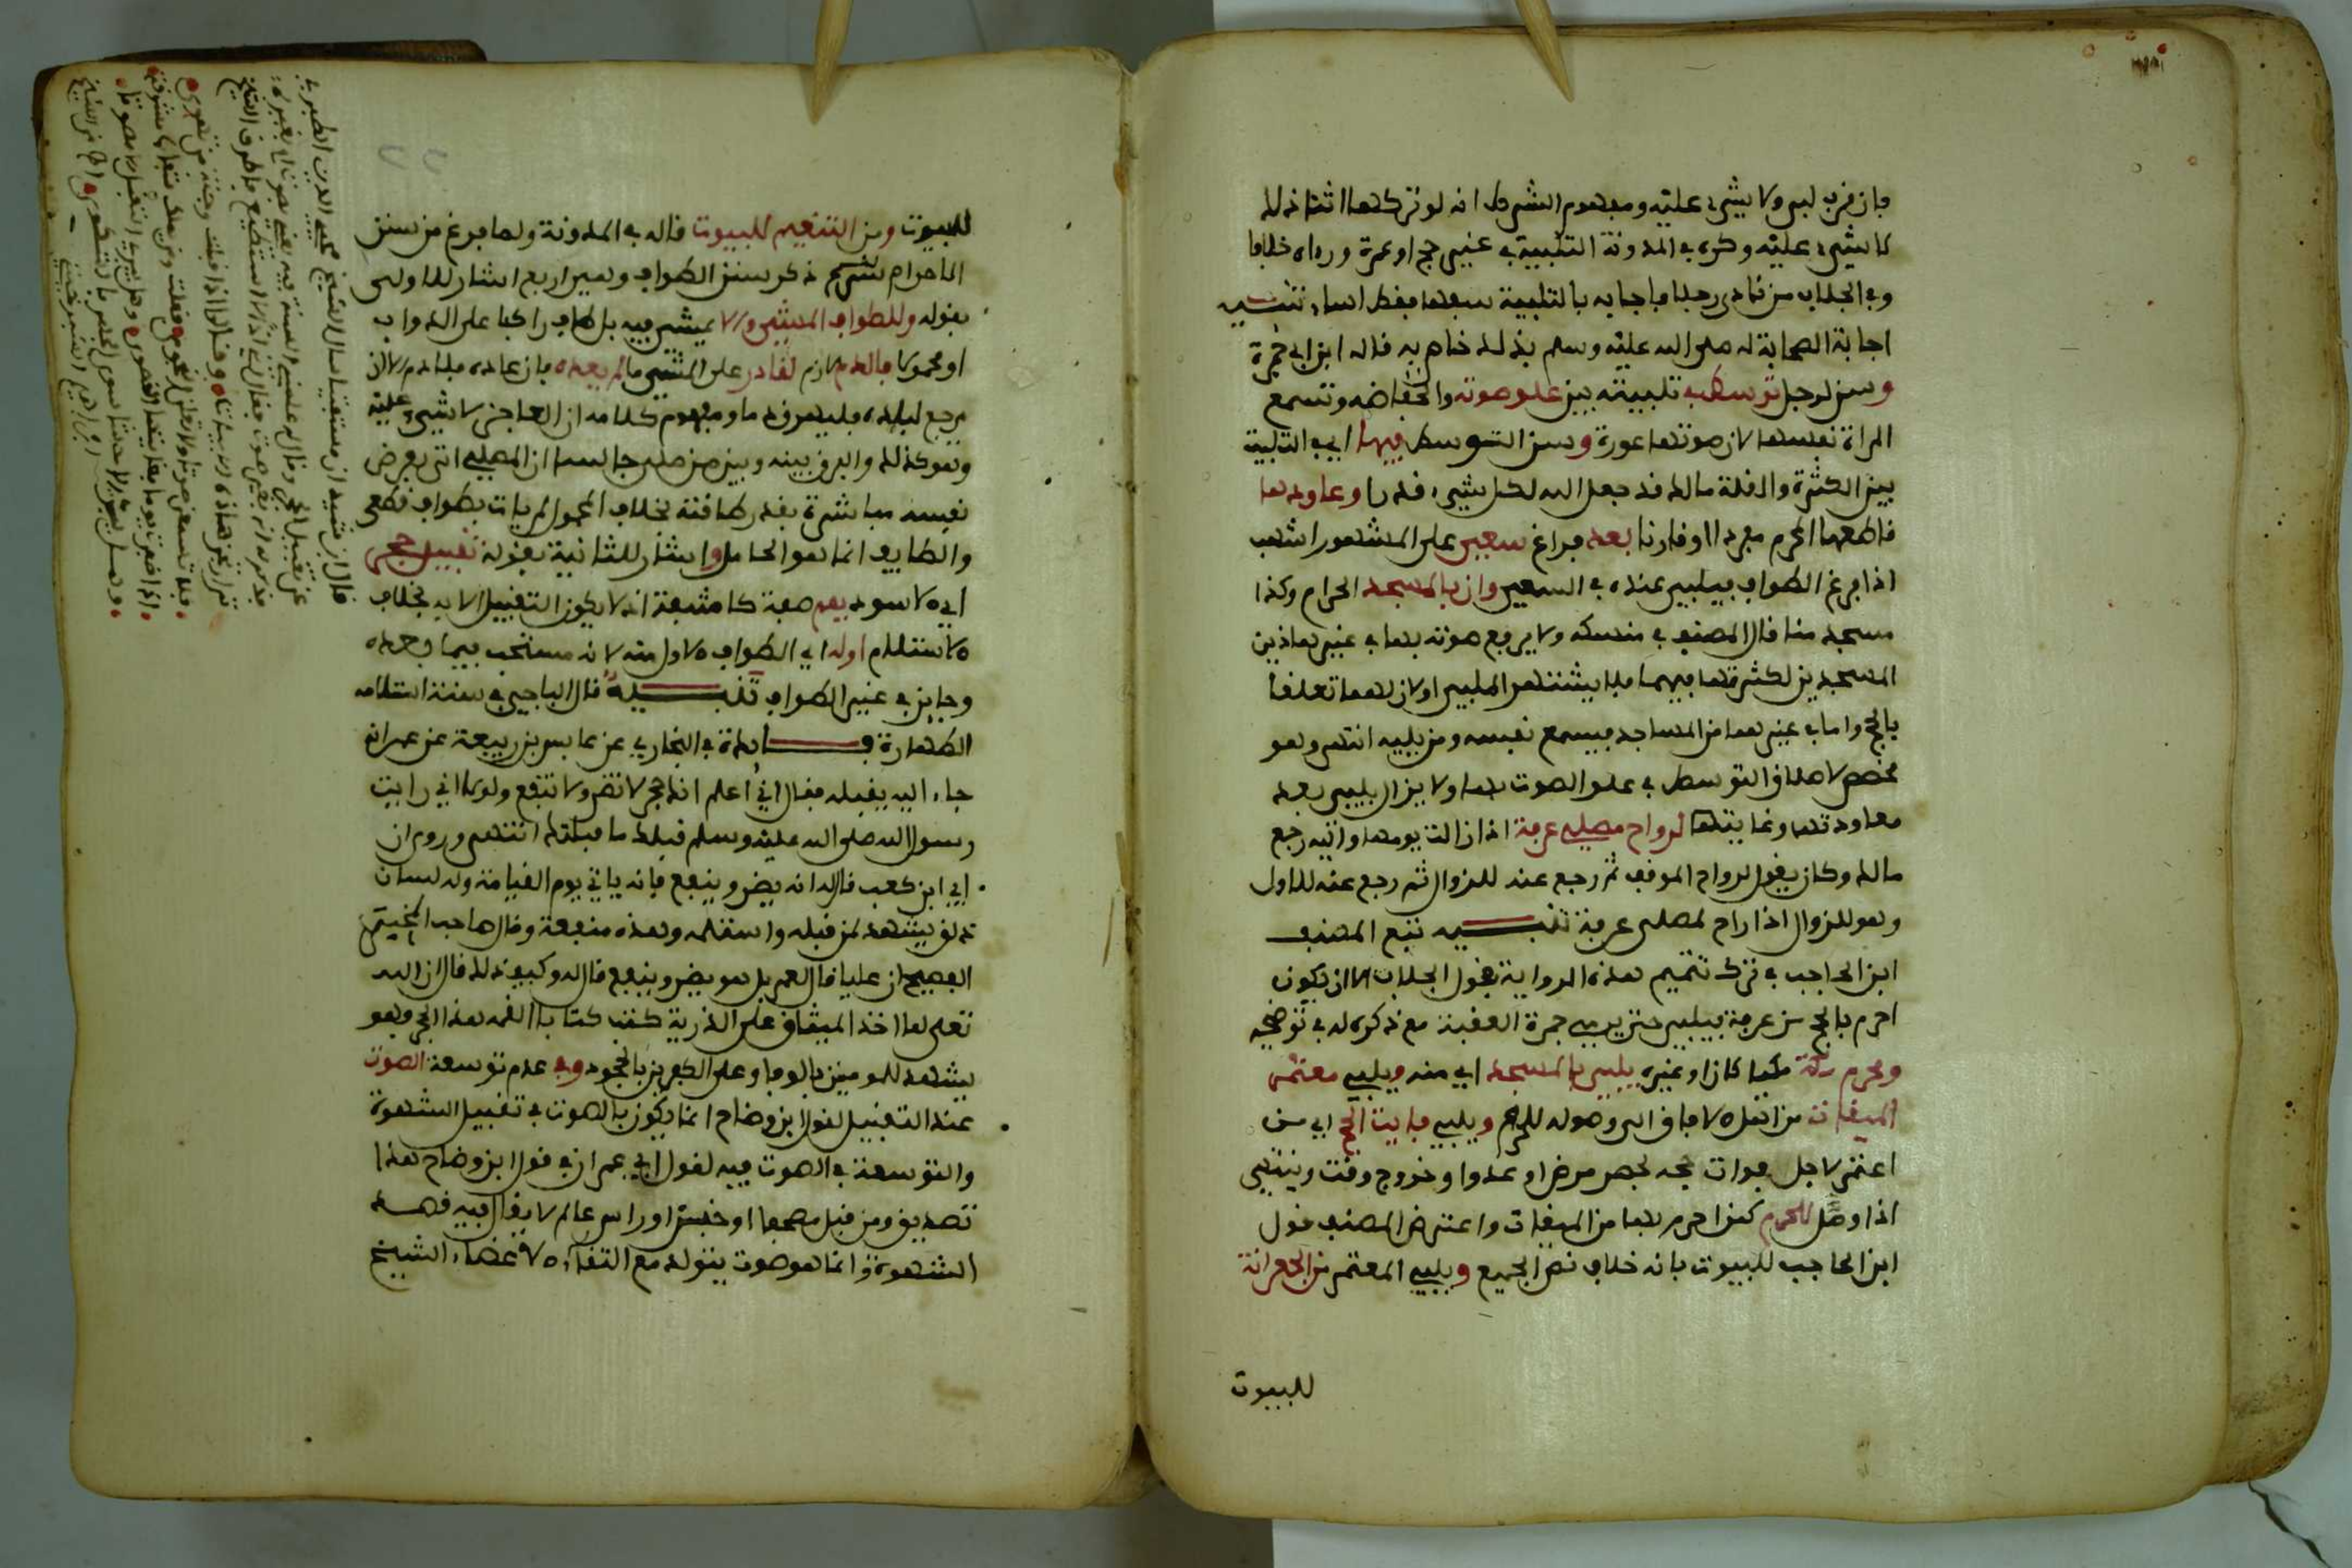 فان قرب لبى ولا شيء عليه ومفهوم الشرط انه لو تركها اثناء ذلك
لا شيء عليه وكره في المدونة التلبية في غير حج او عمرة ورءاه خلافا
وفي الجلاب من نادى رجلا فاجابه بالتلبية سفها فقد اساء تنبيه
اجابة الصحابة له صلى الله عليه وسلم بذلك خاص به قاله ابن ابي جمرة
وسن لرجل توسطه تلبيته بين علو صوته وانخفاضه وتسمع
المراة نفسها لان صوتها عورة وسن التوسط فيها اي في التلبية
بين الكثرة والقلة مالك قد جعل الله لكل شيء قدرا وعاودها
قاطعها المحرم مفردا او قارنا بعد فراغ سعيه على المشهور اشهب
اذا فرغ الطواف فيلبي عنده في السعي وان بالمسجد الحرام وكذا
مسجد منا قال المصنف في منسكه ولا يرفع صوته بها في غير هاذين
المسجدين لكثرتها فيهما فلا يشتهر الملبي او لان لهما تعلقا
بالحج واما في غيرهما من المساجد فيسمع نفسه ومن يليه انتهى وهو
مخصص لاطلاق التوسط في علو الصوت بها ولا يزال يلبي بعد
معاودتها وغايتها لرواح مصلى عرفة اذا زالت يومها واليه رجع
مالك وكان يقول لرواح الموقف ثم رجع عنه للزوال ثم رجع عنه للاول
وهو للزوال اذا راح لمصلى عرفة تنبيه تبع المصنف
ابن الحاجب في ترك تتميم هذه الرواية بقول الجلاب الا ان يكون
احرم بالحج من عرفة فيلبي حتى يرمي جمرة العقبة مع ذكره له في توضيحه
ومحرم مكة مكيا كان او غيره يلبي بالمسجد اي منه ويلبي معتمر
الميقات من اهل الافاق الى وصوله للحرم ويلبي فايت الحج اي من
اعتمر لاجل فوات حجه لحصر مرض او عدو او خروج وقت وينتهي
اذا وصل للحرم كمن احرم بها من الميقات واعترض المصنف قول
ابن الحاجب للبيوت بانه خلاف نص الجميع ويلبي المعتمر من الجعرانة
للبيوت
للبيوت ومن التنعيم للبيوت قاله في المدونة ولما فرغ من سنن
الاحرام شرع ذكر سنن الطواف وهي اربع اشار للاولى
بقوله وللطواف المشي ولا يمشي فيه بل طاف راكبا على الدواب
او محمولا فالدم لازم لقادر على المشي ما لم يعده فان عاده فلا دم لا ان
رجع لبلده فليهرق دما ومفهوم كلامه ان العاجز لا شيء عليه
وهو كذلك والفرق بينه وبين من صلى جالسا ان المصلي اتى بفرض
نفسه مباشرة بقدر طاقته بخلاف المحمول لم يات بطواف قطعي
والطايف انما هو الحامل واشار للثانية بقوله تقبيل حجر
اي الاسود بفم صفة كاشفة اذ لا يكون التقبيل الا به بخلاف
الاستلام اوله اي الطواف الاول منه لانه مستحب فيما بعده
وجايز في غير الطواف تنبيه قال الباجي في سنته استلامه
الطهارة فايدة في البخاري عن عابس بن ربيعة عن عمر انه
جاء اليه يقبله فقال اني اعلم انك حجر لا تضر ولا تنفع ولولا اني رايت
رسول الله صلى الله عليه وسلم قبلك ما قبلتك انتهى وروي ان
ابي ابن كعب قال له انه يضر وينفع فانه ياتي يوم القيامة وله لسان
ذلق يشهد لمن قبله واستلمه وهذه منفعة وقال صاحب
الفصيح ان عليا قال لعمر بل هو يضر وينفع قال له وكيف ذلك قال ان الله
تعالى لما اخذ الميثاق على الذرية كتب كتابا القمه هذا الحجر وهو
يشهد للمومنين بالوفا وعلى الكافرين بالجحود وفي عدم توسعة الصوت
عند التقبيل لقول ابن وضاح انما يكون بالصوت في تقبيل الشهوة
والتوسعة في الصوت فيه لقول ابي عمران في قول ابن وضاح هذا
تصديق ومن قبل مصحفا او خبزا او راس عالم لا يقال فيه قصد
الشهوة وانما هو صوت يتولد مع التقاء الاعضاء الشيخ
قال ابن رشيد ان مستفتيا سال الشيخ محب الدين الطبري